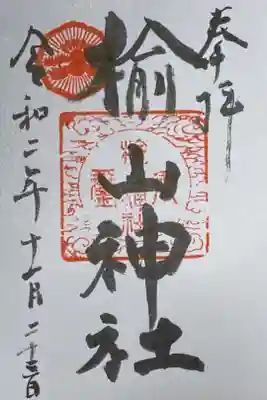 奉拝
楡山神社
令和二年十一月二十三日